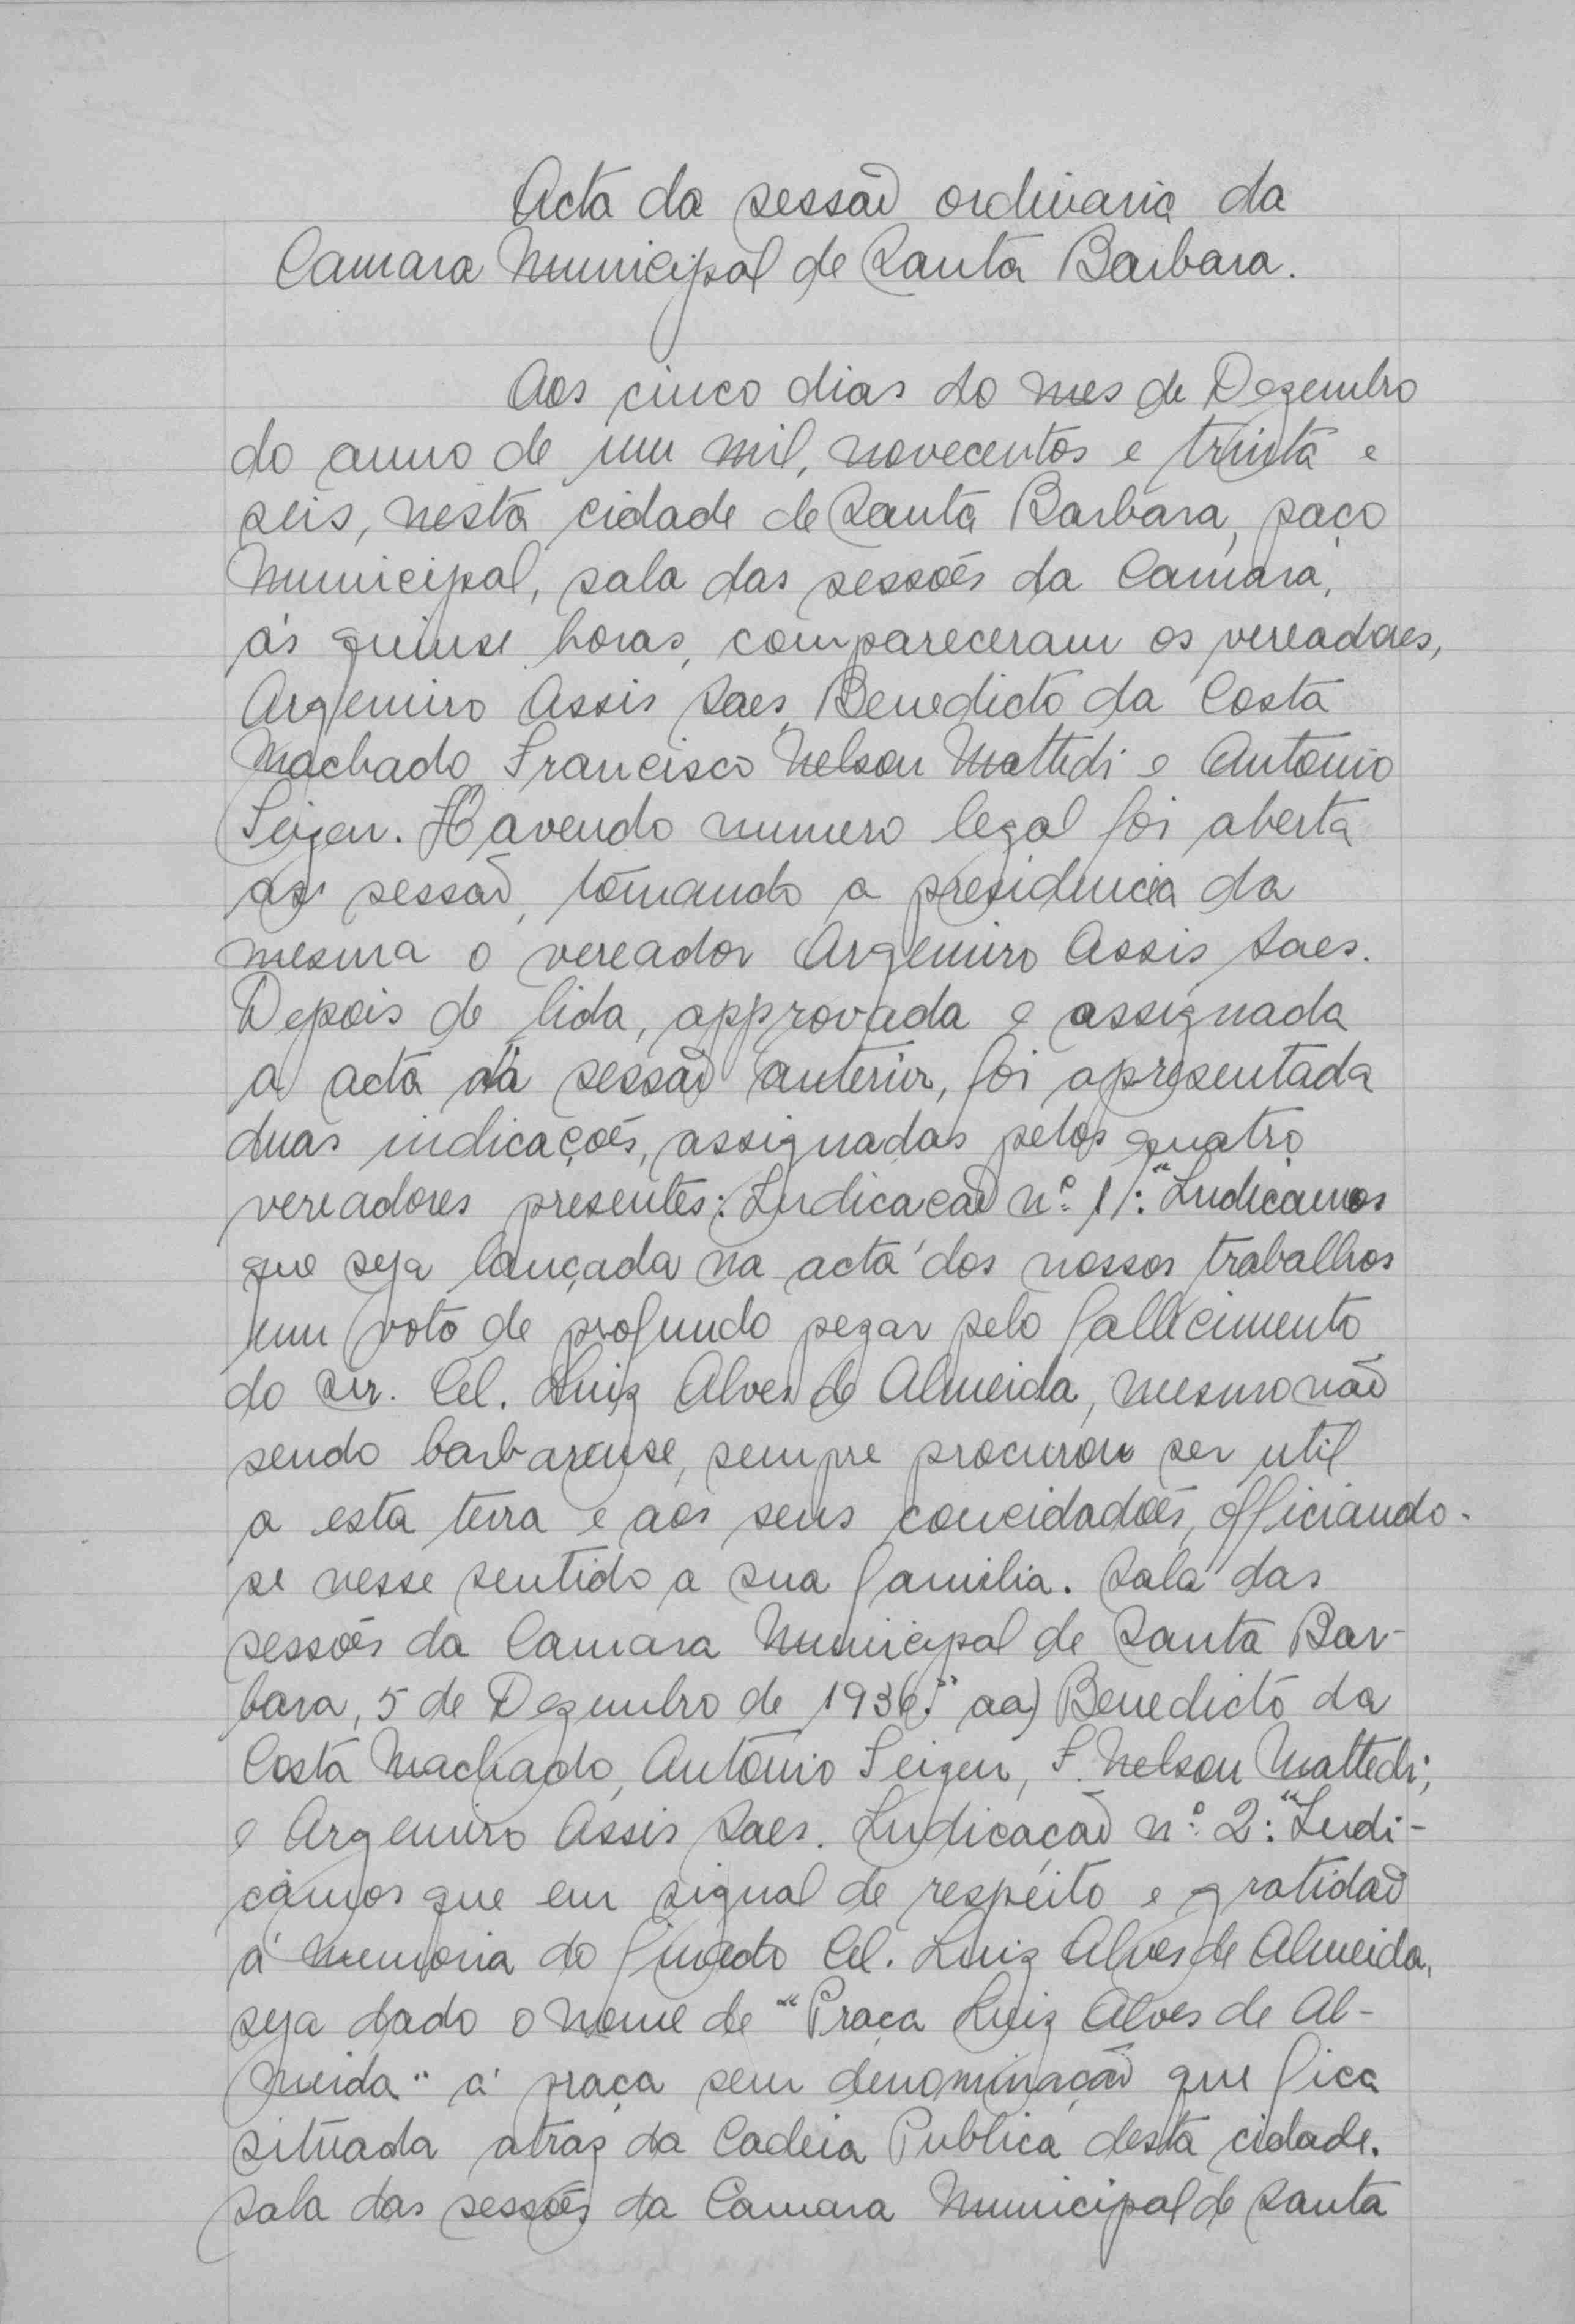 Acta da sessão ordinaria da
Camara Municipal de Santa Barbara.
Aos cinco dias do mes de Dezembro
do anno de um mil, novecentos e trinta e
seis, nesta cidade de Santa Barbara, paço
Municipal, sala das sessões da Camara,
ás quinse horas, compareceram os vereadores,
Argemiro Assis Saes, Benedicto da Costa
Machado, Francisco Nelson Mattedi e Antonio
Seigen. Havendo numero legal foi aberta
as sessão, tomando a presidencia da
mesma o vereador Argemiro Assis Saes.
Depois de lida, approvada e assignada
a acta da sessão anterior, foi apresentada
duas indicações, assignadas pelos quatro
vereadores presentes: Indicacão nº 1/: "Indicamos
que seja lançada na acta dos nossos trabalhos
um voto de profundo pezar pelo fallecimento
do snr. Cel. Luiz Alves de Almeida, mesmo não
sendo barbarense, sempre procurou ser util
a esta terra e aos seus concidadões, officiando-
se nesse sentido a sua familia. Sala das
sessões da Camara Municipal de Santa Bar-
bara, 5 de Dezembro de 1936." aa) Benedicto da
Costa Machado, Antonio Seigen, F. Nelson Mattedi,
e Argemiro Assis Saes. Indicação nº 2: "Indi-
camos que em signal de respeito e gratidão
á memoria do finado Cel. Luiz Alves de Almeida,
seja dado o nome de "Praça Luiz Alves de Al-
meida" á praça sem denominação que fica
situada atraz da Cadeia Publica desta cidade.
Sala das sessões da Camara Municipal de Santa